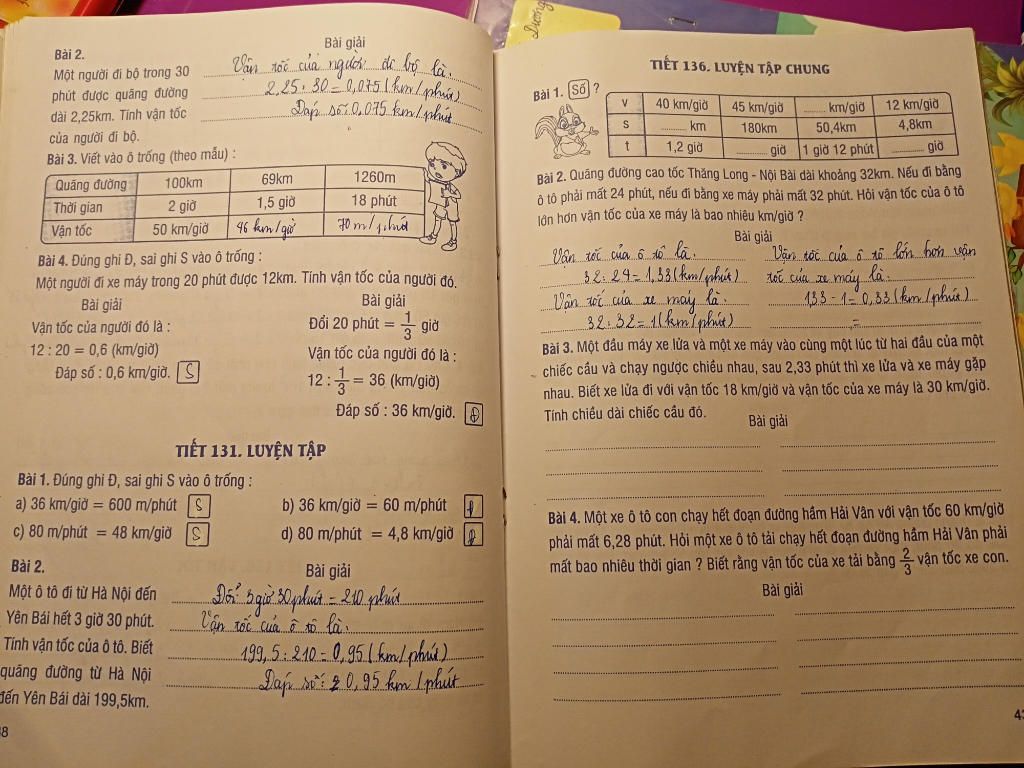 Bài 2.
Bài giải
Một người đi bộ trong 30
phút được quãng đường
dài 2,25km. Tính vận tốc
của người đi bộ.
Vận tốc của người đi bộ là:
2,25 : 30 = 0,075 (km/phút)
Đáp số: 0,075 km/phút
Bài 3. Viết vào ô trống (theo mẫu) :
Quãng đường 100km 69km 1260m
Thời gian 2 giờ 1,5 giờ 18 phút
Vận tốc 50 km/giờ 46 km/giờ 70 m/phút
Bài 4. Đúng ghi Đ, sai ghi S vào ô trống :
Một người đi xe máy trong 20 phút được 12km. Tính vận tốc của người đó.
Bài giải
Vận tốc của người đó là :
12 : 20 = 0,6 (km/giờ)
Đáp số : 0,6 km/giờ. S
Bài giải
Đổi 20 phút = 1/3 giờ
Vận tốc của người đó là :
12 : 1/3 = 36 (km/giờ)
Đáp số : 36 km/giờ. Đ
TIẾT 131. LUYỆN TẬP
Bài 1. Đúng ghi Đ, sai ghi S vào ô trống :
a) 36 km/giờ = 600 m/phút S
b) 36 km/giờ = 60 m/phút
c) 80 m/phút = 48 km/giờ S
d) 80 m/phút = 4,8 km/giờ
Bài 2.
Bài giải
Một ô tô đi từ Hà Nội đến
Yên Bái hết 3 giờ 30 phút.
Tính vận tốc của ô tô. Biết
quãng đường từ Hà Nội
đến Yên Bái dài 199,5km.
Đổi 3 giờ 30 phút = 210 phút
Vận tốc của ô tô là:
199,5 : 210 = 0,95 (km/phút)
Đáp số: 0,95 km/phút
Dương
1
TIẾT 136. LUYỆN TẬP CHUNG
Bài 1. Số ?
v 40 km/giờ 45 km/giờ ........ km/giờ 12 km/giờ
s ........ km 180km 50,4km 4,8km
t 1,2 giờ ........ giờ 1 giờ 12 phút ........ giờ
Bài 2. Quãng đường cao tốc Thăng Long - Nội Bài dài khoảng 32km. Nếu đi bằng
ô tô phải mất 24 phút, nếu đi bằng xe máy phải mất 32 phút. Hỏi vận tốc của ô tô
lớn hơn vận tốc của xe máy là bao nhiêu km/giờ ?
Bài giải
Vận tốc của ô tô là:
32 : 24 = 1,33 (km/phút)
Vận tốc của xe máy là:
32 : 32 = 1 (km/phút)
Vận tốc của ô tô lớn hơn vận
tốc của xe máy là:
133 - 1 = 0,33 (km/phút)
=
Bài 3. Một đầu máy xe lửa và một xe máy vào cùng một lúc từ hai đầu của một
chiếc cầu và chạy ngược chiều nhau, sau 2,33 phút thì xe lửa và xe máy gặp
nhau. Biết xe lửa đi với vận tốc 18 km/giờ và vận tốc của xe máy là 30 km/giờ.
Tính chiều dài chiếc cầu đó.
Bài giải
Bài 4. Một xe ô tô con chạy hết đoạn đường hầm Hải Vân với vận tốc 60 km/giờ
phải mất 6,28 phút. Hỏi một xe ô tô tải chạy hết đoạn đường hầm Hải Vân phải
mất bao nhiêu thời gian ? Biết rằng vận tốc của xe tải bằng 2/3 vận tốc xe con.
Bài giải